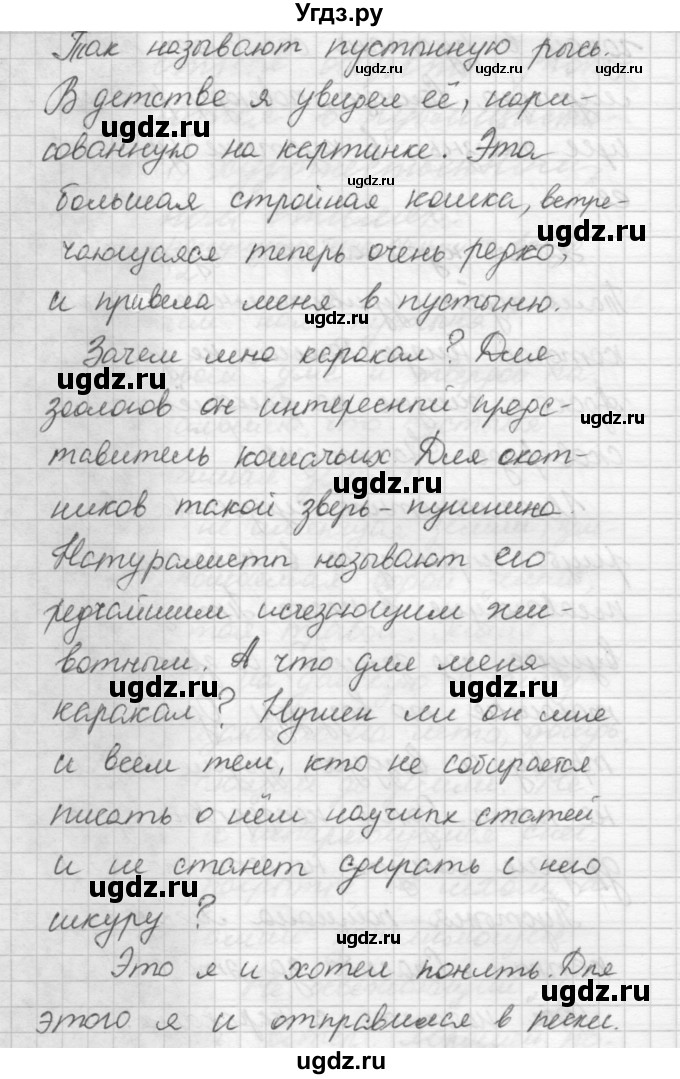 Угдз.ру
Так называют пустынную рысь.
ugdz.ru ugdz.ru
В детстве я увидел её, нари-
ugdz.ru ugdz.ru
сованную на картинке. Эта
ugdz.ru
большая стройная кошка, встре-
ugdz.ru
чающаяся теперь очень редко,
и привела меня в пустыню.
ugdz.ru
Зачем мне каракал? Для
ugdz.ru
зоологов он интересный предс-
ugdz.ru
тавитель кошачьих Для охот-
ugdz.ru
ников такой зверь - пушнина.
Натуралисты называют его
редчайшим исчезающим жи-
вотным. А что для меня
ugdz.ru ugdz.ru
каракал? Нужен ли он мне
и всем тем, кто не собирается
писать о нём научных статей
и не станет сдирать с него
ugdz.ru
шкуру?
ugdz.ru
Это я и хотел понять. Для
ugdz.ru
этого я и отправился в пески.
ugdz.ru